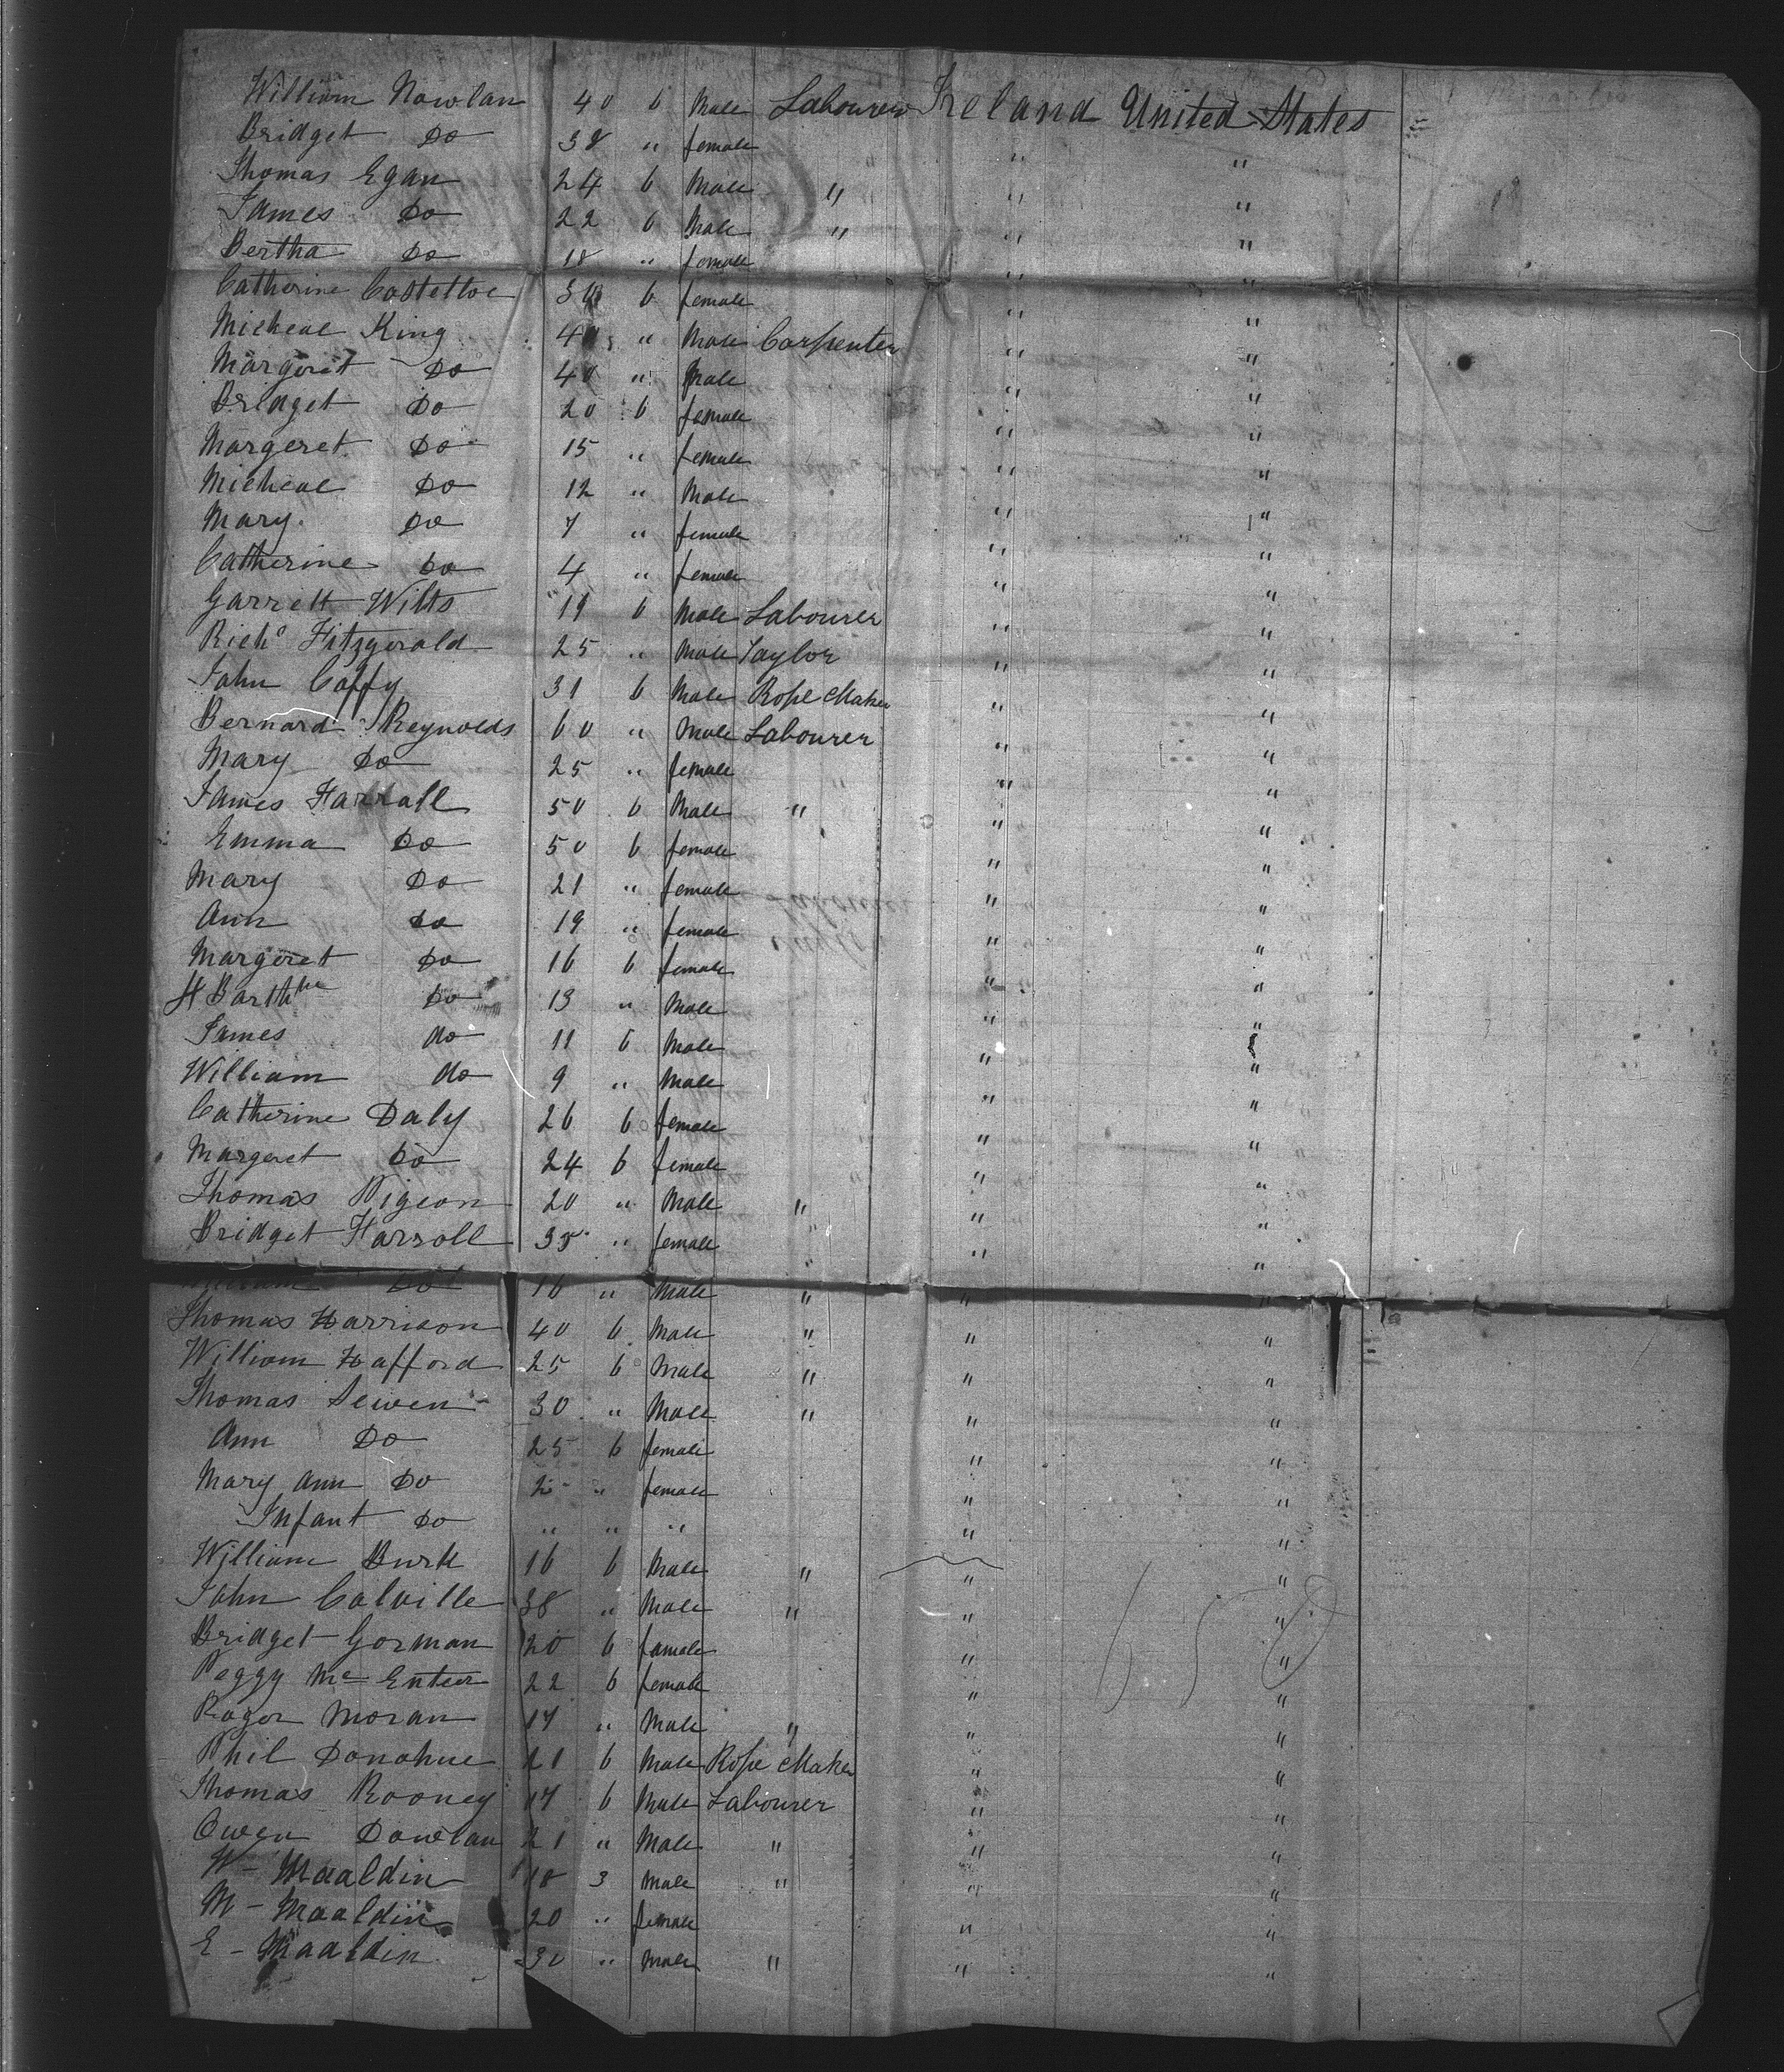 William Nowlan 40 6 Male Labourer Ireland United States
Bridget Do 38 " female " "
Thomas Egan 24 6 Male " " "
James Do 22 6 Male " " "
Bertha Do 18 " female " "
Catherine Costelloe 6 female " "
Micheal King 40 " Male Carpenter " "
Margerit Do 40 " Male " "
Bridget Do 20 6 female " "
Margeret Do 15 " female " "
Micheal Do 12 " Male " "
Mary Do 7 " female " "
Catherine Do 4 " female " "
Garrett Wilts 19 6 Male Labourer " "
Richd Fitzgerald 25 " Male Taylor " "
John Coffy 31 6 Male Rope Maker " "
Bernard Reynolds 60 " Male Labourer " "
Mary Do 25 " female " "
James Farrall 50 6 Male " " "
Emma Do 50 6 female " "
Mary Do 21 " female " "
Ann Do 19 " female " "
Margeret Do 16 6 female " "
Do 13 " Male " "
James do 11 6 Male " "
William do 9 " Male " "
Catherine Daly 26 6 female " "
Margeret Do 24 6 female " "
Thomas Pigeon 20 " Male " " "
Bridget Farroll 35 " female " "
William Do 16 " Male " " "
Thomas Harrison 40 6 Male " " "
William Hafford 25 6 Male " " "
Thomas Sewen 30 " Male " " "
Ann Do 25 6 female " "
Mary Ann Do 2 " female " "
Infant Do " " " " "
William Burk 16 6 Male " " "
John Colville 38 " Male " " "
Bridget Gorman 20 6 famale " "
Peggy Mc Enteer 22 6 female " "
Roger Moran 17 " Male " " "
Phil Donohue 21 6 Male Rope Maker " "
Thomas Rooney 17 6 Male Labourer " "
Owen Dowlan 21 " Male " " "
W - Maaldin 18 3 Male " " "
M - Maaldin 20 " female " "
E - Maaldin 30 " Male " " "